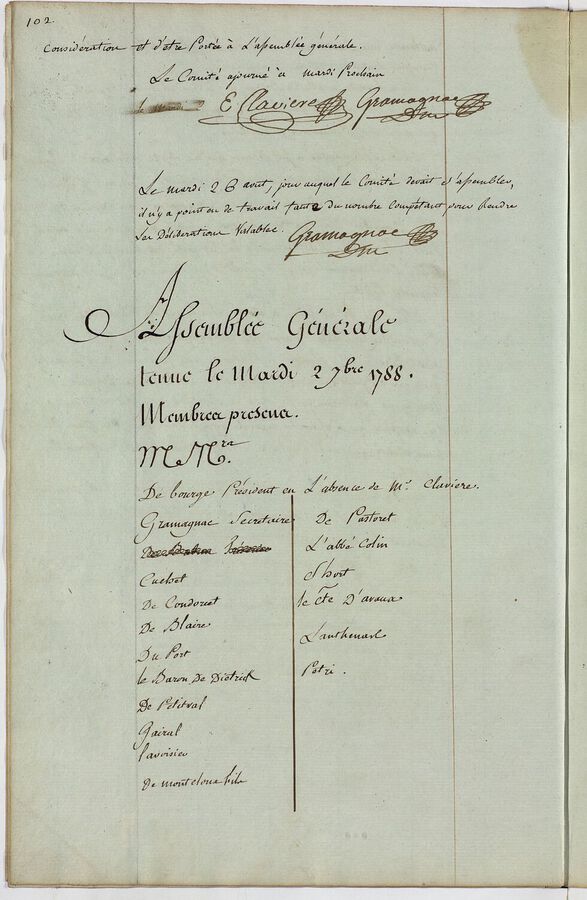 102.
Considération et d'etre Portée à L'assemblée générale.
Le Comité ajourné à mardi Prochain
le
E Claviere Gramagnac
Dm
Le mardi 26 aout, jour auquel le Comité devait s'assembler,
il n'y a point eu de travail faute du nombre Compétant pour Rendre
Les Déliberations Valables. Gramagnac
Dm
Assemblée Générale
tenue le Mardi 2 7bre 1788.
Membres presens.
M Mrs.
De bourge Président en L'absence de Mr. Claviere.
Gramagnac Secretaire De Pastoret
L'abbé Colin
Cuchet Short
De Condorcet le Cte D'avaux
De Blaire Lanthenas
Du Port
le Baron De Dietrich Petri.
De Petitval
Gairal
lavoisier
De montcloux fils